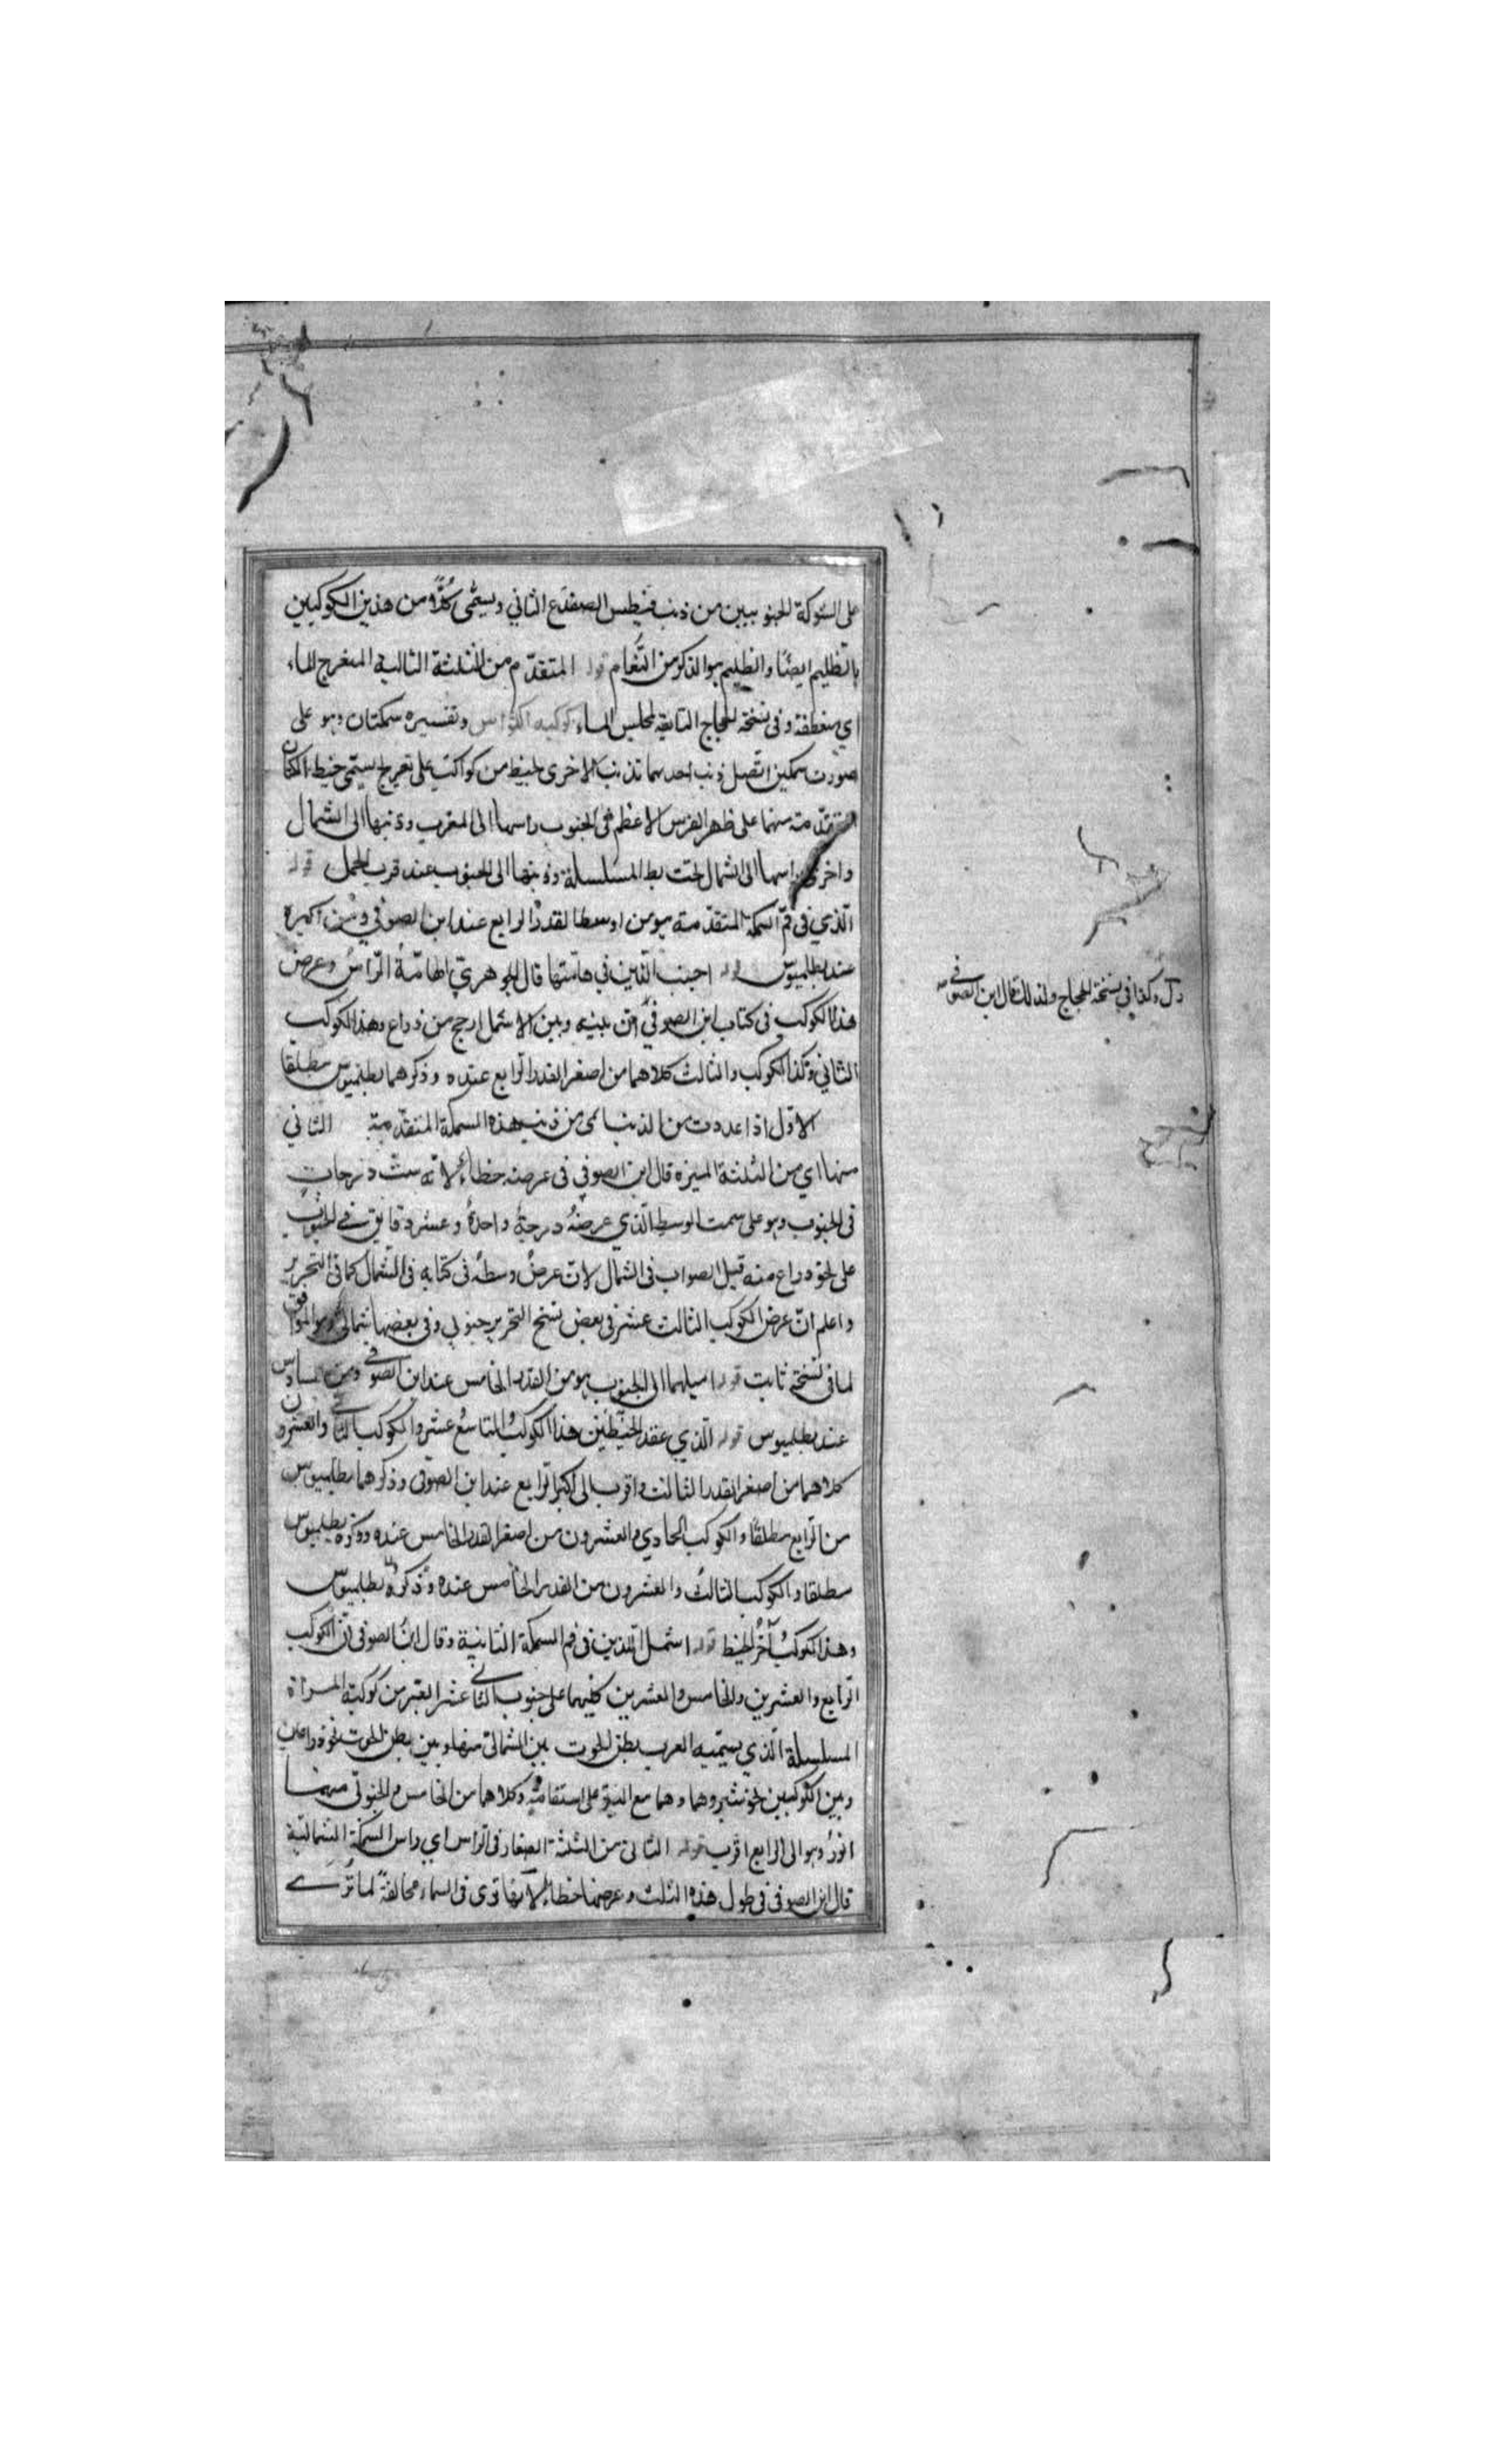 على الشوكة الجنوبيين من ذنب قيطس الضفدع الثاني ويسمى كلا من هذين الكوكبين
بالظليم ايضا والظليم هو الذكر من النعام قوله المتقدم من الثلثة التالية المنعرج الماء
اي منعطفه وفى نسخة الحجاج التابعة لمجلس الماء كوكبة وتفسيره سمكتان وهو على
صورت سمكين اتصل ذنب احدهما بذنب الاخرى بخيط من كواكب على تعريج يسمى خيط الكتان
المتقدمة منهما على ظهر الفرس الاعظم فى الجنوب راسها الى المغرب وذنبها الى الشمال
واخرى راسها الى الشمال تحت ابط المسلسلة وذنبها الى الجنوب عند قرب الحمل قوله
الذي فى فم السمكة المتقدمة هو من اوسط القدر الرابع عند ابن الصوفي ومن اكبره
عند بطلميوس قوله اجنب الذين في هامتها قال الجوهري الهامة الراس وعرض
هذا الكوكب فى كتاب ابن الصوفي ان بينه وبين الاشمل ارجح من ذراع وهذا الكوكب
الثاني وكذا الكوكب والثالث كلاهما من اصغر القدر الرابع عنده وذكرهما بطلميوس مطلقا
الاول اذا عددت من الذنب اى من ذنب هذه السمكة المتقدمة الثاني
منها اي من الثلثة المميزه قال ابن الصوفي فى عرضه خطاء لانه ست درجات
فى الجنوب وهو على سمت الوسط الذي عرضه درجة واحدة وعشر دقايق في الجنوب
على نحو ذراع منه قيل الصواب فى الشمال لان عرض وسطه فى كتابه فى الشمال كما فى التحرير
واعلم ان عرض الكوكب الثالث عشر فى بعض نسخ التحرير جنوبي وفى بعضها شمالى وهو الموافق
لما فى نسخة ثابت قوله اميلهما الى الجنوب هو من القدر الخامس عند ابن الصوفي ومن السادس
عند بطلميوس قوله الذي عقد الخيطين هذا الكوكب التاسع عشر والكوكب الثاني والعشرون
كلاهما من اصغر القدر الثالث واقرب الى اكبر الرابع عند ابن الصوفى وذكرهما بطلميوس
من الرابع مطلقا والكوكب الحادي والعشرون من اصغر القدر الخامس عنده وذكره بطلميوس
مطلقا والكوكب الثالث والعشرون من القدر الخامس عنده وذكره بطلميوس
وهذا الكوكب آخر الخيط قوله اشمل الذين فى فم السمكة الثانية وقال ابن الصوفى ان الكوكب
الرابع والعشرين والخامس والعشرين كليهما على جنوب الثاني عشر من كوكبة المراة
المسلسلة الذي يسميه العرب بطن الحوت بين الشمالى منها وبين بطن الحوت نحو ذراعين
وبين الكوكبين نحو شبر وهما مع على استقامة وكلاهما من الخامس والجنوبى منهما
انور وهو الى الرابع اقرب قوله الثانى من الثلثة الصغار فى الراس اي راس السمكة الشمالية
قال ابن الصوفى فى طول هذه الثلث وعرضها خطا لانها ترى فى السماء مخالفة لما ترى
وكذا فى نسخة الحجاج ولذلك قال ابن الصوفى